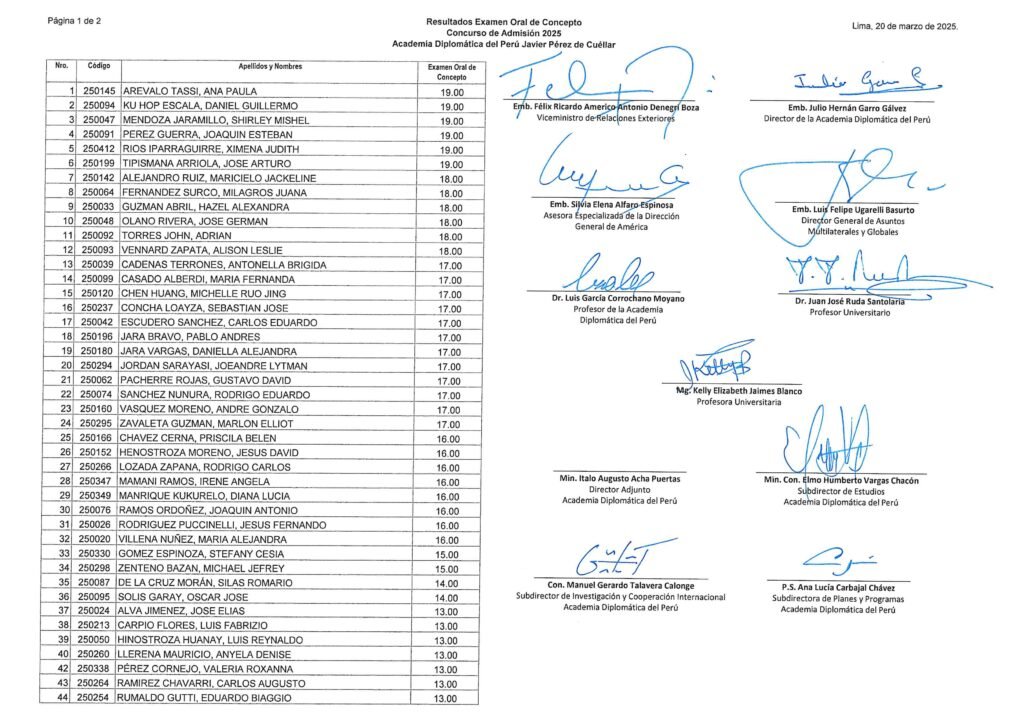 Página 1 de 2
Resultados Examen Oral de Concepto
Concurso de Admisión 2025
Academia Diplomática del Perú Javier Pérez de Cuéllar
Lima, 20 de marzo de 2025.
Nro. Código Apellidos y Nombres Examen Oral de Concepto
1 250145 AREVALO TASSI, ANA PAULA 19.00
2 250094 KU HOP ESCALA, DANIEL GUILLERMO 19.00
3 250047 MENDOZA JARAMILLO, SHIRLEY MISHEL 19.00
4 250091 PEREZ GUERRA, JOAQUIN ESTEBAN 19.00
5 250412 RIOS IPARRAGUIRRE, XIMENA JUDITH 19.00
6 250199 TIPISMANA ARRIOLA, JOSE ARTURO 19.00
7 250142 ALEJANDRO RUIZ, MARICIELO JACKELINE 18.00
8 250064 FERNANDEZ SURCO, MILAGROS JUANA 18.00
9 250033 GUZMAN ABRIL, HAZEL ALEXANDRA 18.00
10 250048 OLANO RIVERA, JOSE GERMAN 18.00
11 250092 TORRES JOHN, ADRIAN 18.00
12 250093 VENNARD ZAPATA, ALISON LESLIE 18.00
13 250039 CADENAS TERRONES, ANTONELLA BRIGIDA 17.00
14 250099 CASADO ALBERDI, MARIA FERNANDA 17.00
15 250120 CHEN HUANG, MICHELLE RUO JING 17.00
16 250237 CONCHA LOAYZA, SEBASTIAN JOSE 17.00
17 250042 ESCUDERO SANCHEZ, CARLOS EDUARDO 17.00
18 250196 JARA BRAVO, PABLO ANDRES 17.00
19 250180 JARA VARGAS, DANIELLA ALEJANDRA 17.00
20 250294 JORDAN SARAYASI, JOEANDRE LYTMAN 17.00
21 250062 PACHERRE ROJAS, GUSTAVO DAVID 17.00
22 250074 SANCHEZ NUNURA, RODRIGO EDUARDO 17.00
23 250160 VASQUEZ MORENO, ANDRE GONZALO 17.00
24 250295 ZAVALETA GUZMAN, MARLON ELLIOT 17.00
25 250166 CHAVEZ CERNA, PRISCILA BELEN 16.00
26 250152 HENOSTROZA MORENO, JESUS DAVID 16.00
27 250266 LOZADA ZAPANA, RODRIGO CARLOS 16.00
28 250347 MAMANI RAMOS, IRENE ANGELA 16.00
29 250349 MANRIQUE KUKURELO, DIANA LUCIA 16.00
30 250076 RAMOS ORDOÑEZ, JOAQUIN ANTONIO 16.00
31 250026 RODRIGUEZ PUCCINELLI, JESUS FERNANDO 16.00
32 250020 VILLENA NUÑEZ, MARIA ALEJANDRA 16.00
33 250330 GOMEZ ESPINOZA, STEFANY CESIA 15.00
34 250298 ZENTENO BAZAN, MICHAEL JEFREY 15.00
35 250087 DE LA CRUZ MORÁN, SILAS ROMARIO 14.00
36 250095 SOLIS GARAY, OSCAR JOSE 14.00
37 250024 ALVA JIMENEZ, JOSE ELIAS 13.00
38 250213 CARPIO FLORES, LUIS FABRIZIO 13.00
39 250050 HINOSTROZA HUANAY, LUIS REYNALDO 13.00
40 250260 LLERENA MAURICIO, ANYELA DENISE 13.00
42 250338 PÉREZ CORNEJO, VALERIA ROXANNA 13.00
43 250264 RAMIREZ CHAVARRI, CARLOS AUGUSTO 13.00
44 250254 RUMALDO GUTTI, EDUARDO BIAGGIO 13.00
Emb. Félix Ricardo Americo Antonio Denegri Boza
Viceministro de Relaciones Exteriores
Emb. Julio Hernán Garro Gálvez
Director de la Academia Diplomática del Perú
Emb. Silvia Elena Alfaro Espinosa
Asesora Especializada de la Dirección
General de América
Emb. Luis Felipe Ugarelli Basurto
Director General de Asuntos
Multilaterales y Globales
Dr. Luis García Corrochano Moyano
Profesor de la Academia
Diplomática del Perú
Dr. Juan José Ruda Santolaria
Profesor Universitario
Mg. Kelly Elizabeth Jaimes Blanco
Profesora Universitaria
Min. Italo Augusto Acha Puertas
Director Adjunto
Academia Diplomática del Perú
Min. Con. Elmo Humberto Vargas Chacón
Subdirector de Estudios
Academia Diplomática del Perú
Con. Manuel Gerardo Talavera Calonge
Subdirector de Investigación y Cooperación Internacional
Academia Diplomática del Perú
P.S. Ana Lucía Carbajal Chávez
Subdirectora de Planes y Programas
Academia Diplomática del Perú